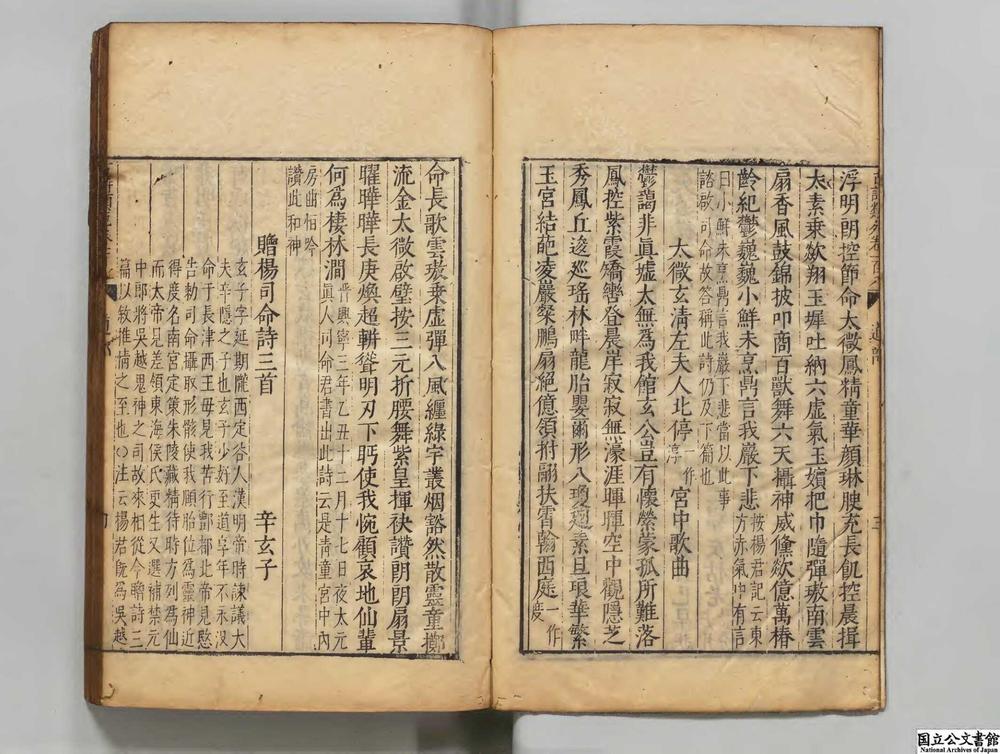 浮明朗控節命太微鳳精童華顏琳腴充長飢控晨揖
太素乗欻翔玉墀吐納六虚氣玉嬪把巾隨彈璈南雲
扇香風鼓錦披叩商百獸舞六天攝神威儵欻億萬椿
齡紀鬱巍巍小鮮未烹鼎言我巖下悲
按楊君記云東
方赤氣中有言
曰小鮮未烹鼎言我巖下悲當以此事
諮啟司命故答稱此詩仍及下篇也
太微玄清左夫人北停
一作
渟
宮中歌曲
鬱藹非眞墟太無為我館玄公豈有懷縈蒙孤所難落
鳳控紫霞矯轡登晨岸寂寂無濠涯暉暉空中觀隱芝
秀鳳丘逡巡瑤林畔龍胎嬰爾形八瓊廻素旦琅華繁
玉宮結葩凌巖粲鵬扇絕億領拊翮扶霄翰西庭
一作
度
命長歌雲璈乗虛彈八風纏綠宇叢烟豁然散靈童擲
流金太微啟璧按三元折腰舞紫皇揮袂讚朗朗扇景
曜曄曄長庚煥超軿聳明刃下眄使我惋顧哀地仙輩
何為棲林澗
晉興寧三年乙丑十二月十七日夜太元
眞人司命君書出此詩云是青童宮中內
房曲恒吟
讚此和神
贈楊司命詩三首
辛玄子
玄子字延期隴西定谷人漢明帝時諫議大
夫辛隱之子也玄子少好至道早年不永沒
命于長津西王母見我苦行酆都北帝見愍
告勅司命攝取形骸使我頤胎位為靈神近
得度名南宮定策朱陵藏精待時方列為仙
而太帝見差領東海侯氏更生又選補禁元
中郎將吳越鬼神之司故來相從今贈詩三
篇以敘推情之至也○注云楊君既為吳越
国立公文書館
National Archives of Japan